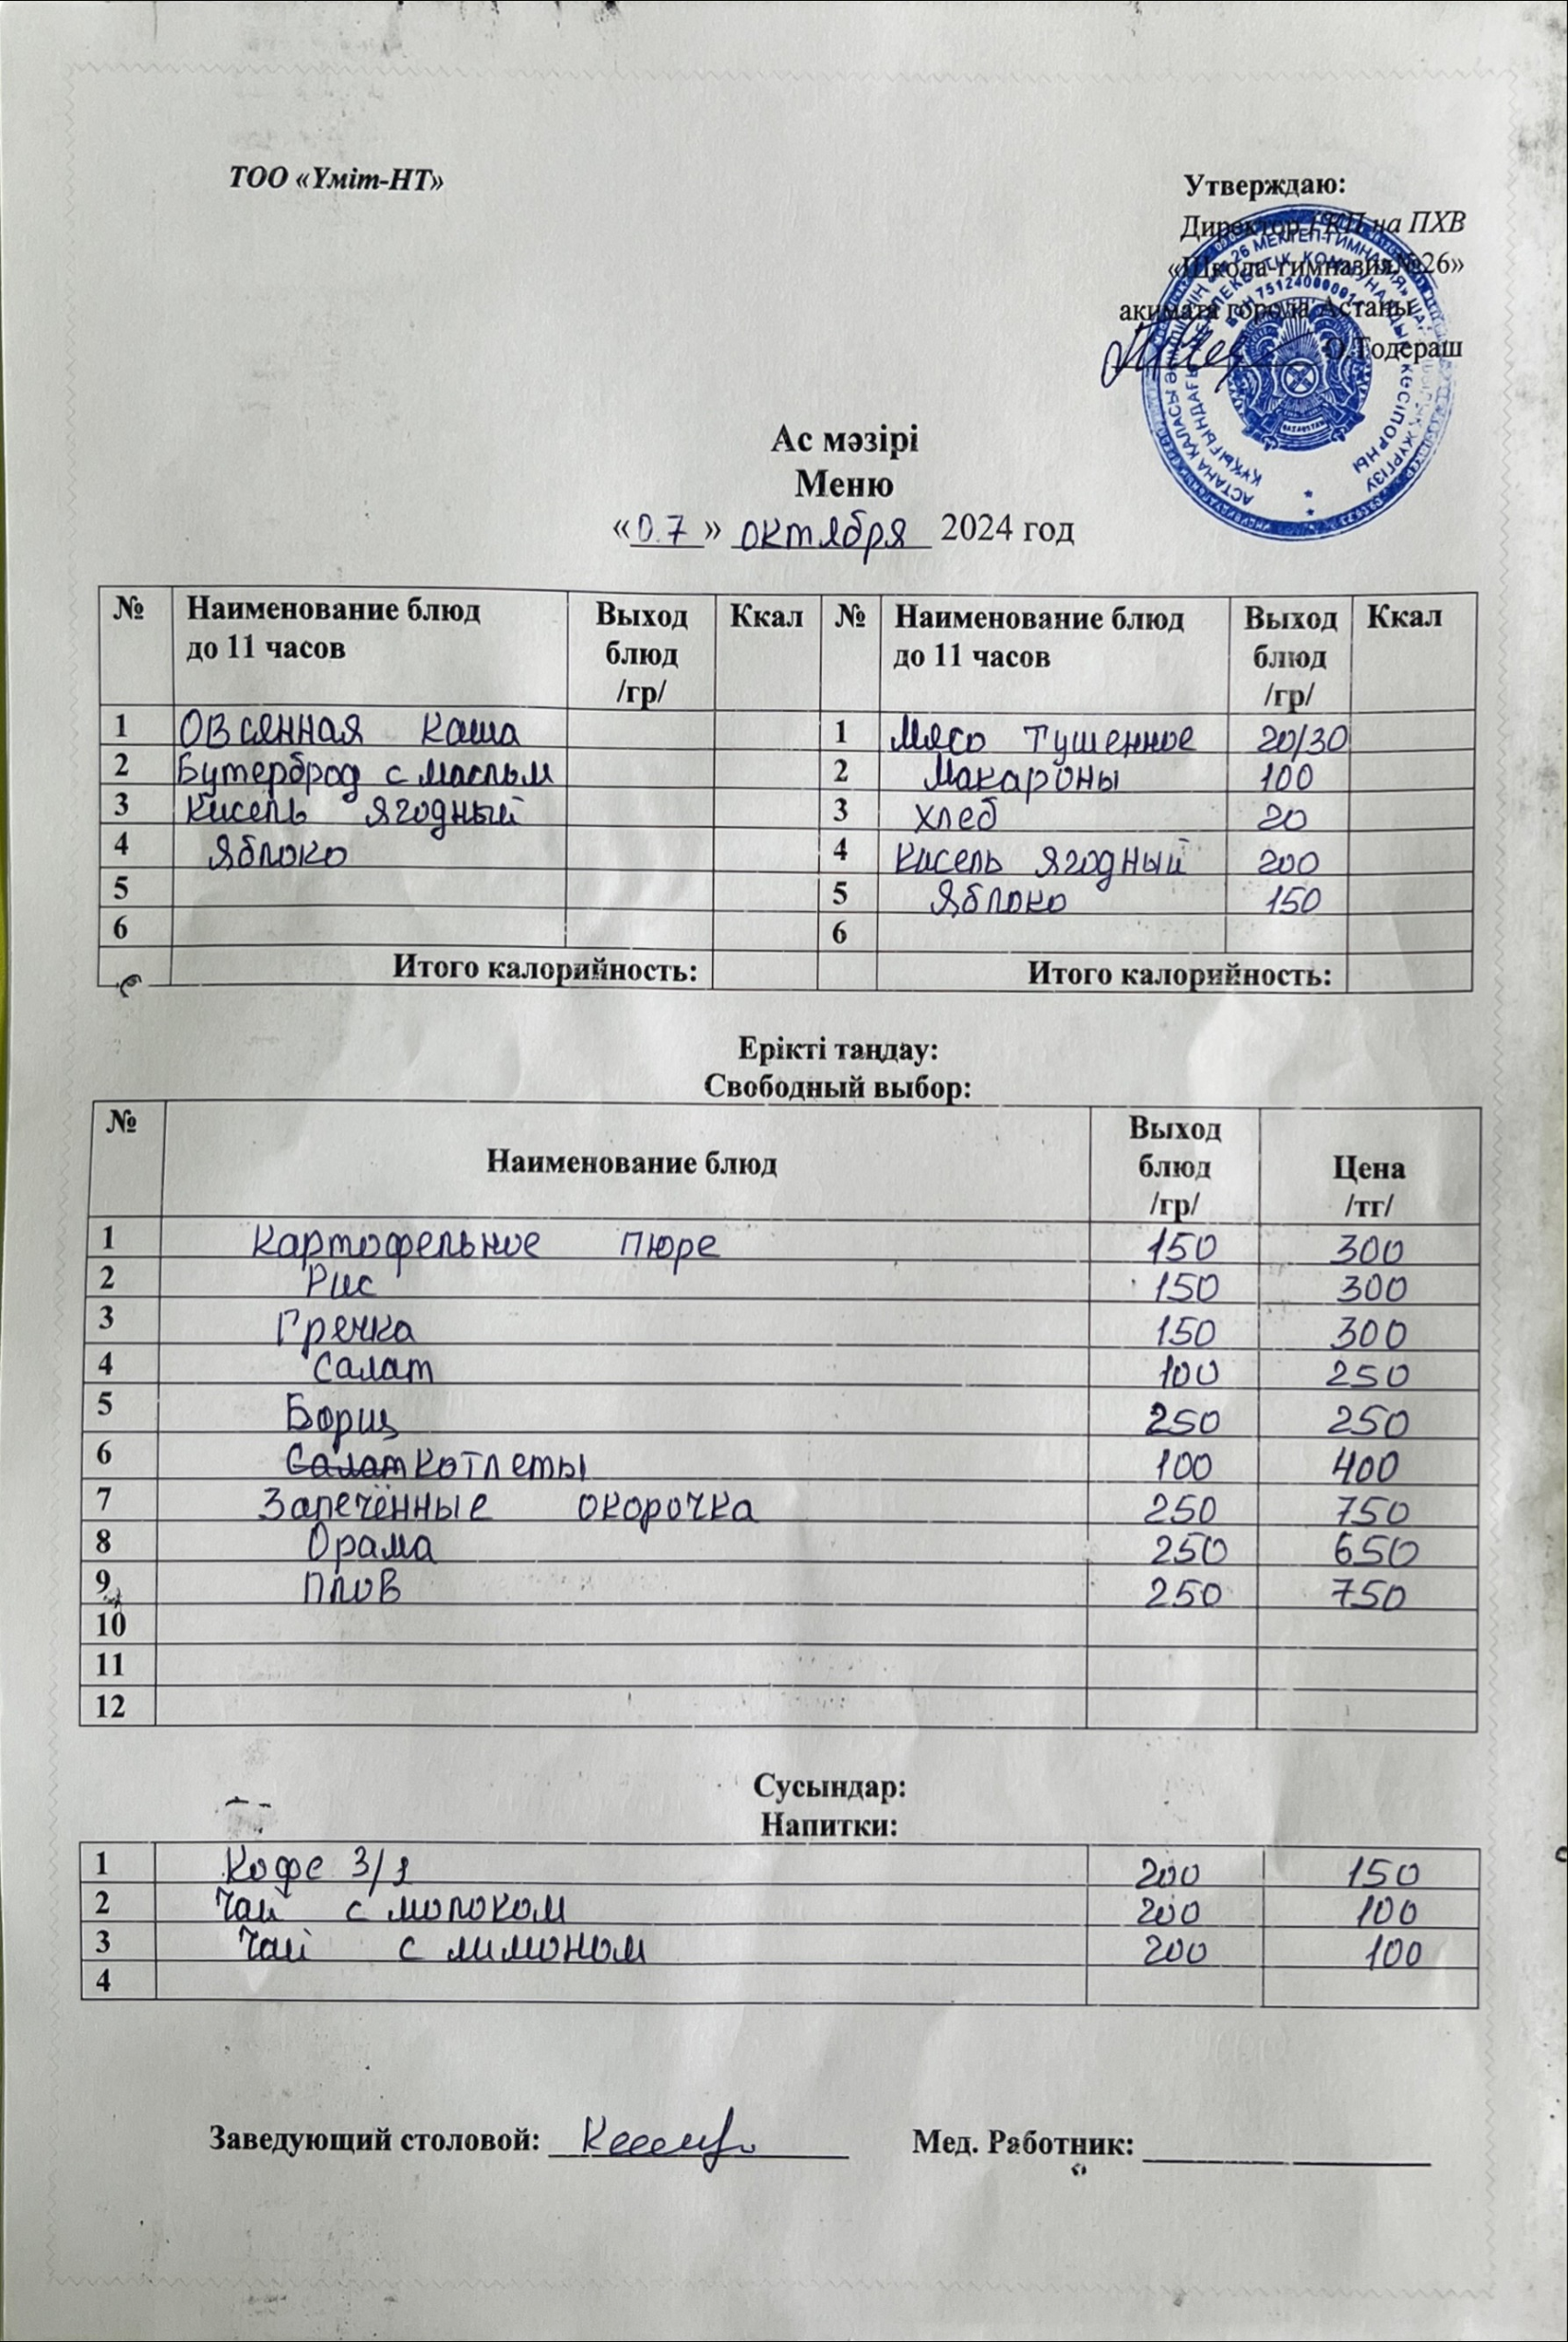 ТОО «Үміт-НТ»
Утверждаю:
Директор ГКП на ПХВ
«Школа-гимназия№26»
акимата города Астаны
О.Тодераш
Ас мәзірі
Меню
«07» октября 2024 год
№ Наименование блюд до 11 часов Выход блюд /гр/ Ккал № Наименование блюд до 11 часов Выход блюд /гр/ Ккал
1 Овсянная каша 1 Мясо тушенное 20/30
2 Бутерброд с маслом 2 Макароны 100
3 Кисель ягодный 3 Хлеб 20
4 Яблоко 4 Кисель ягодный 200
5 5 Яблоко 150
6 6
Итого калорийность: Итого калорийность:
Ерікті таңдау:
Свободный выбор:
№ Наименование блюд Выход блюд /гр/ Цена /тг/
1 Картофельное пюре 150 300
2 Рис 150 300
3 Гречка 150 300
4 Салат 100 250
5 Борщ 250 250
6 Салат Котлеты 100 400
7 Запечённые окорочка 250 750
8 Орама 250 650
9 Плов 250 750
10
11
12
Сусындар:
Напитки:
1 Кофе 3/1 200 150
2 Чай с молоком 200 100
3 Чай с лимоном 200 100
4
Заведующий столовой: Мед. Работник: